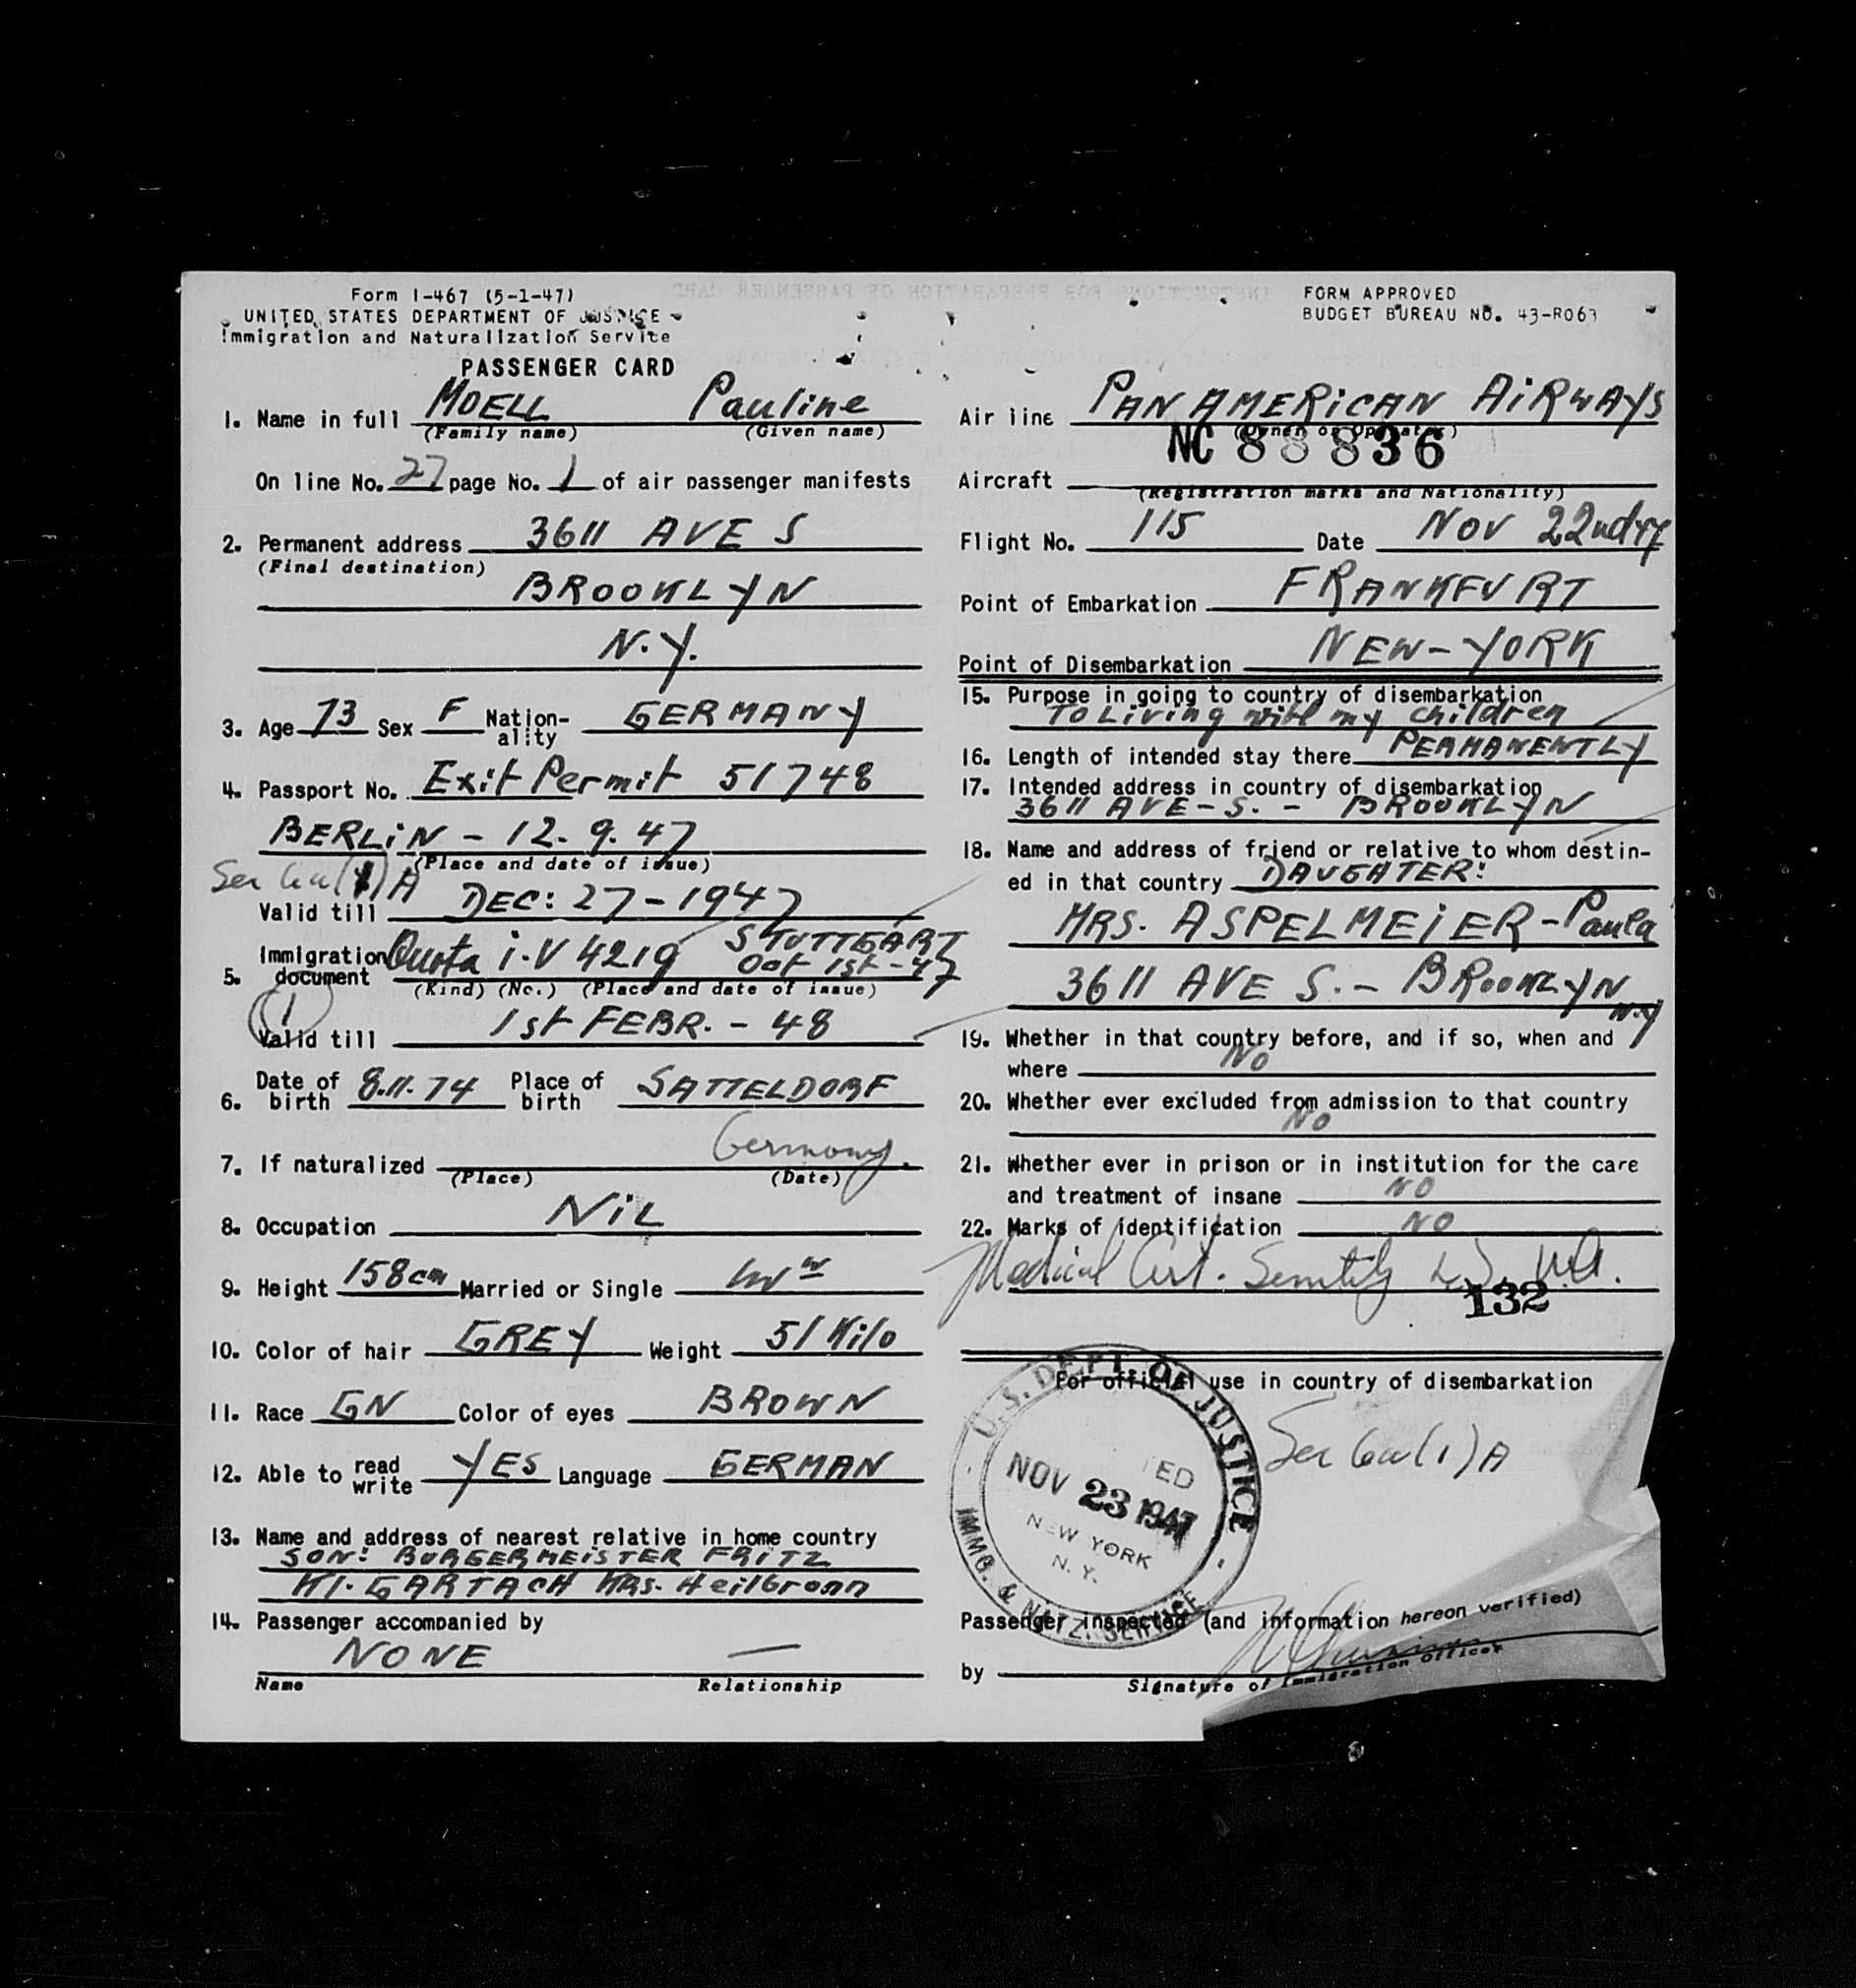 Form I-467 (5-1-47)
UNITED STATES DEPARTMENT OF JUSTICE
Immigration and Naturalization Service
PASSENGER CARD
FORM APPROVED
BUDGET BUREAU NO. 43-R063
1. Name in full MOELL Pauline
(Family name) (Given name)
On line No. 27 page No. 1 of air passenger manifests
2. Permanent address 3611 AVE S
(Final destination)
BROOKLYN
N.Y.
3. Age 73 Sex F Nation-ality GERMANY
4. Passport No. Exit Permit 51748
BERLiN - 12. 9. 47
(Place and date of issue)
Valid till DEC: 27-1947
5. Immigration document Quota i.V 4219 STUTTGART Oct 1st-47
(Kind) (No.) (Place and date of issue)
(1)
Valid till 1st FEBR. - 48
6. Date of birth 8.11.74 Place of birth SATTELDORF
Germany.
7. If naturalized
(Place) (Date)
8. Occupation NiL
9. Height 158cm Married or Single
10. Color of hair GREY Weight 51 Kilo
11. Race GN Color of eyes BROWN
12. Able to read write YES Language GERMAN
13. Name and address of nearest relative in home country
SON: BURGERMEiSTER FRiTZ
Kl. GARTACH KRS. Heilbronn
14. Passenger accompanied by
NONE —
Name Relationship
Air line PAN AMERiCAN AiRWAYS
(Owner or Operator)
NC 88836
Aircraft
(Registration marks and Nationality)
Flight No. 115 Date NOV 22nd 47
Point of Embarkation FRANKFURT
Point of Disembarkation NEW-YORK
15. Purpose in going to country of disembarkation
To Living with my children
16. Length of intended stay there PERMANENTLY
17. Intended address in country of disembarkation
3611 AVE-S. - BROOKLYN
18. Name and address of friend or relative to whom destin-
ed in that country DAUGHTER:
MRS. ASPELMEiER-Paula
3611 AVE S. - BROOKLYN
N.Y
19. Whether in that country before, and if so, when and
where NO
20. Whether ever excluded from admission to that country
NO
21. Whether ever in prison or in institution for the care
and treatment of insane NO
22. Marks of identification NO
Medical Cert. Senility
132
For official use in country of disembarkation
U.S. DEPT. OF JUSTICE
NOV 23 1947
NEW YORK
N.Y.
IMMG. & NATZ. SERVICE
Passenger inspected (and information hereon verified)
by
Signature of Immigration Officer